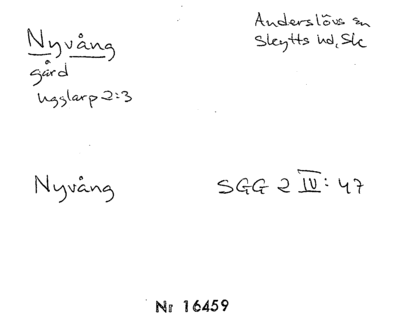 Nyvång
Anderslövs sn
Skytts hd, Sk
gård
Ugglarp 2:3
Nyvång
SGG 2 IV: 47
Nr 16459